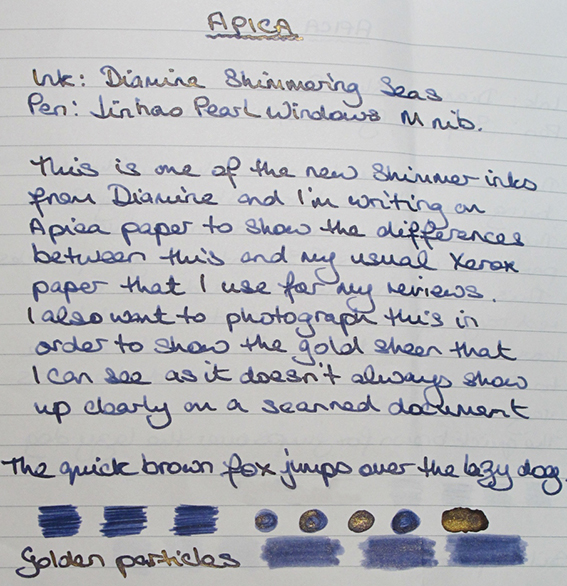 APICA
Ink: Diamine Shimmering Seas
Pen: Jinhao Pearl Windows M nib.
This is one of the new Shimmer inks
from Diamine and I'm writing on
Apica paper to show the differences
between this and my usual Xerox
paper that I use for my reviews.
I also want to photograph this in
order to show the gold sheen that
I can see as it doesn't always show
up clearly on a scanned document
The quick brown fox jumps over the lazy dog.
Golden particles